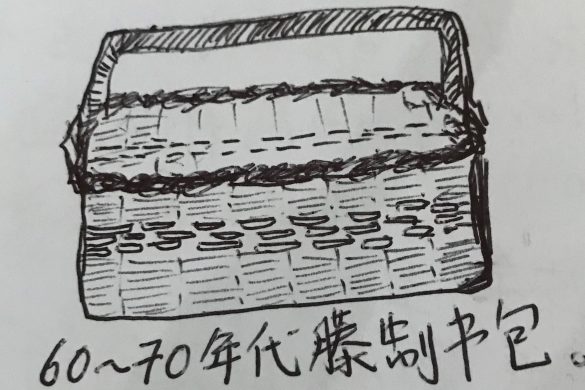 60~70年代藤制书包.